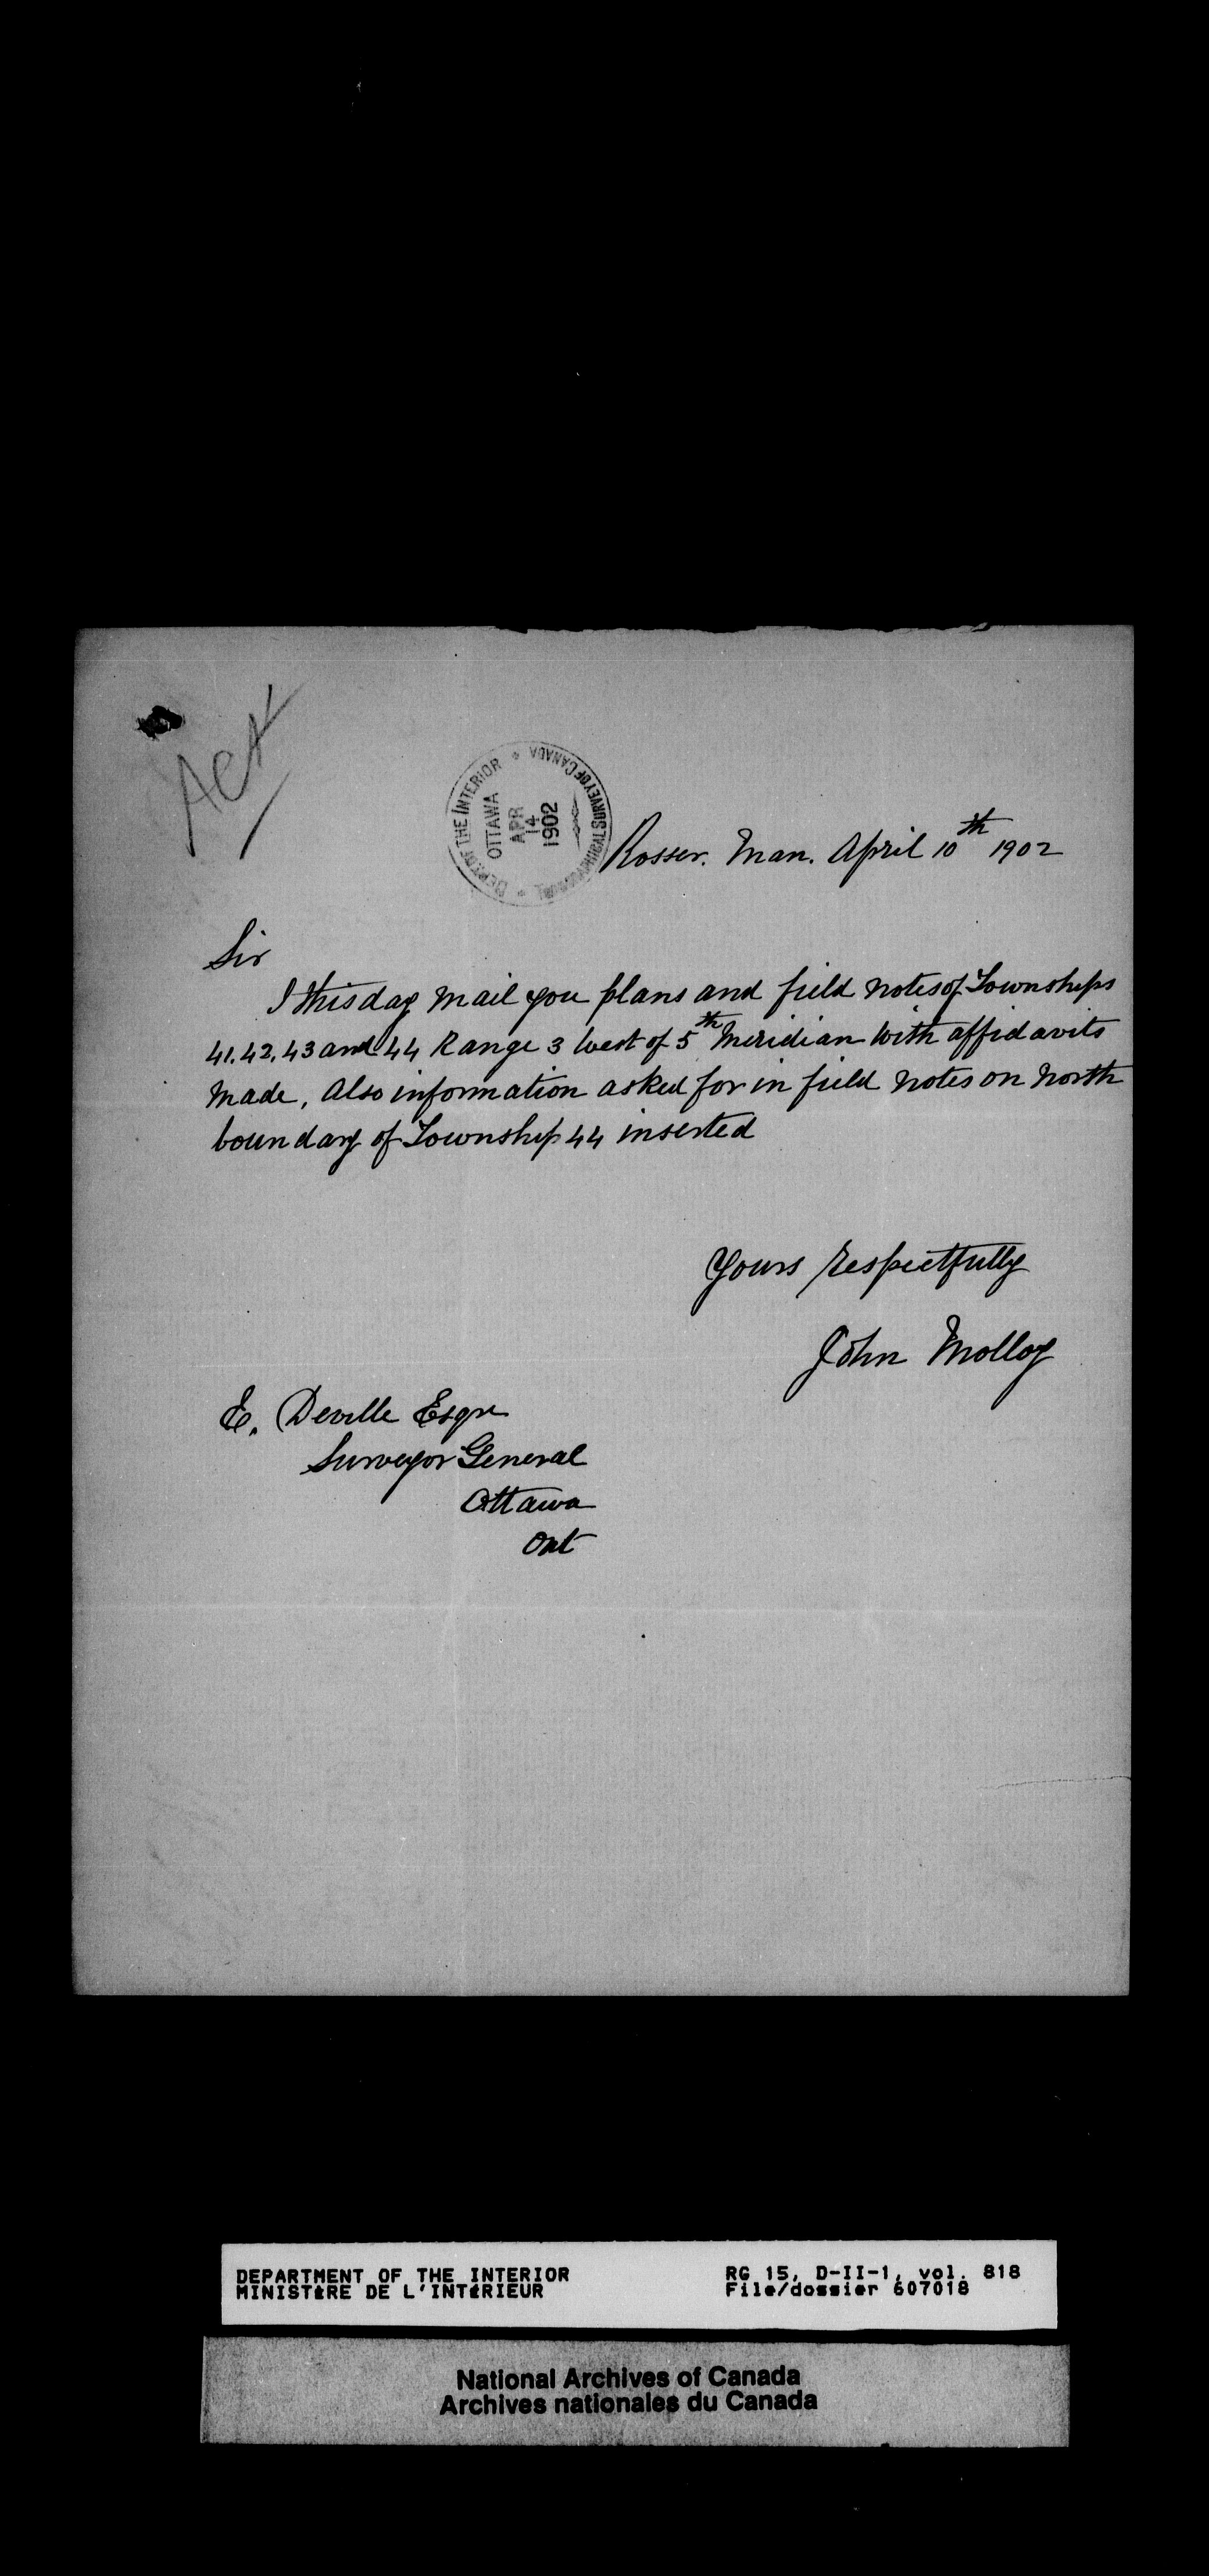 Ack
DEPT. OF THE INTERIOR * TOPOGRAPHICAL SURVEY OF CANADA *
OTTAWA
APR
14
1902
Rosser. Man. April 10th 1902
Sir
I this day mail you plans and field notes of Townships
41. 42. 43 and 44 Range 3 West of 5th Meridian With affidavits
made, Also information asked for in field notes on North
boundary of Township 44 inserted
Yours respectfully
John Molloy
E. Deville Esqre
Surveyor General
Ottawa
Ont
DEPARTMENT OF THE INTERIOR RG 15, D-II-1, vol. 818
MINISTÈRE DE L'INTÉRIEUR File/dossier 607018
National Archives of Canada
Archives nationales du Canada